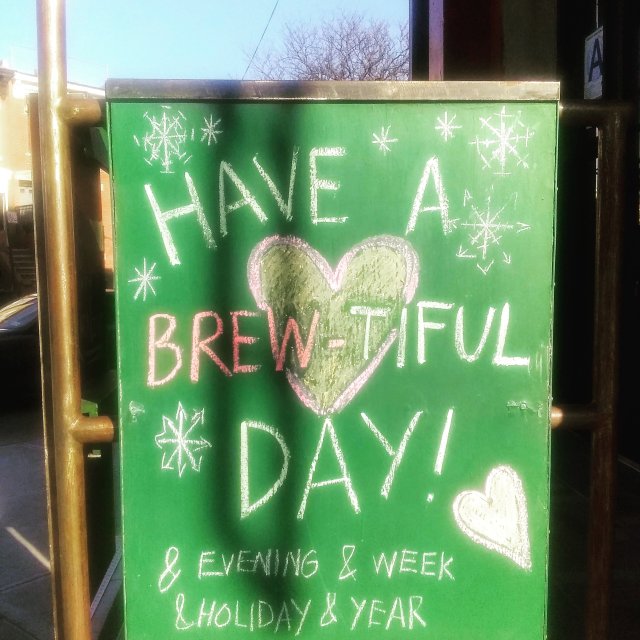 A
HAVE A
BREW-TIFUL
DAY!
& EVENING & WEEK
& HOLIDAY & YEAR